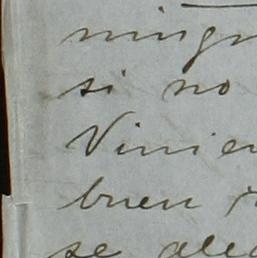 ningu
si no
Vinien
buen
se aleg